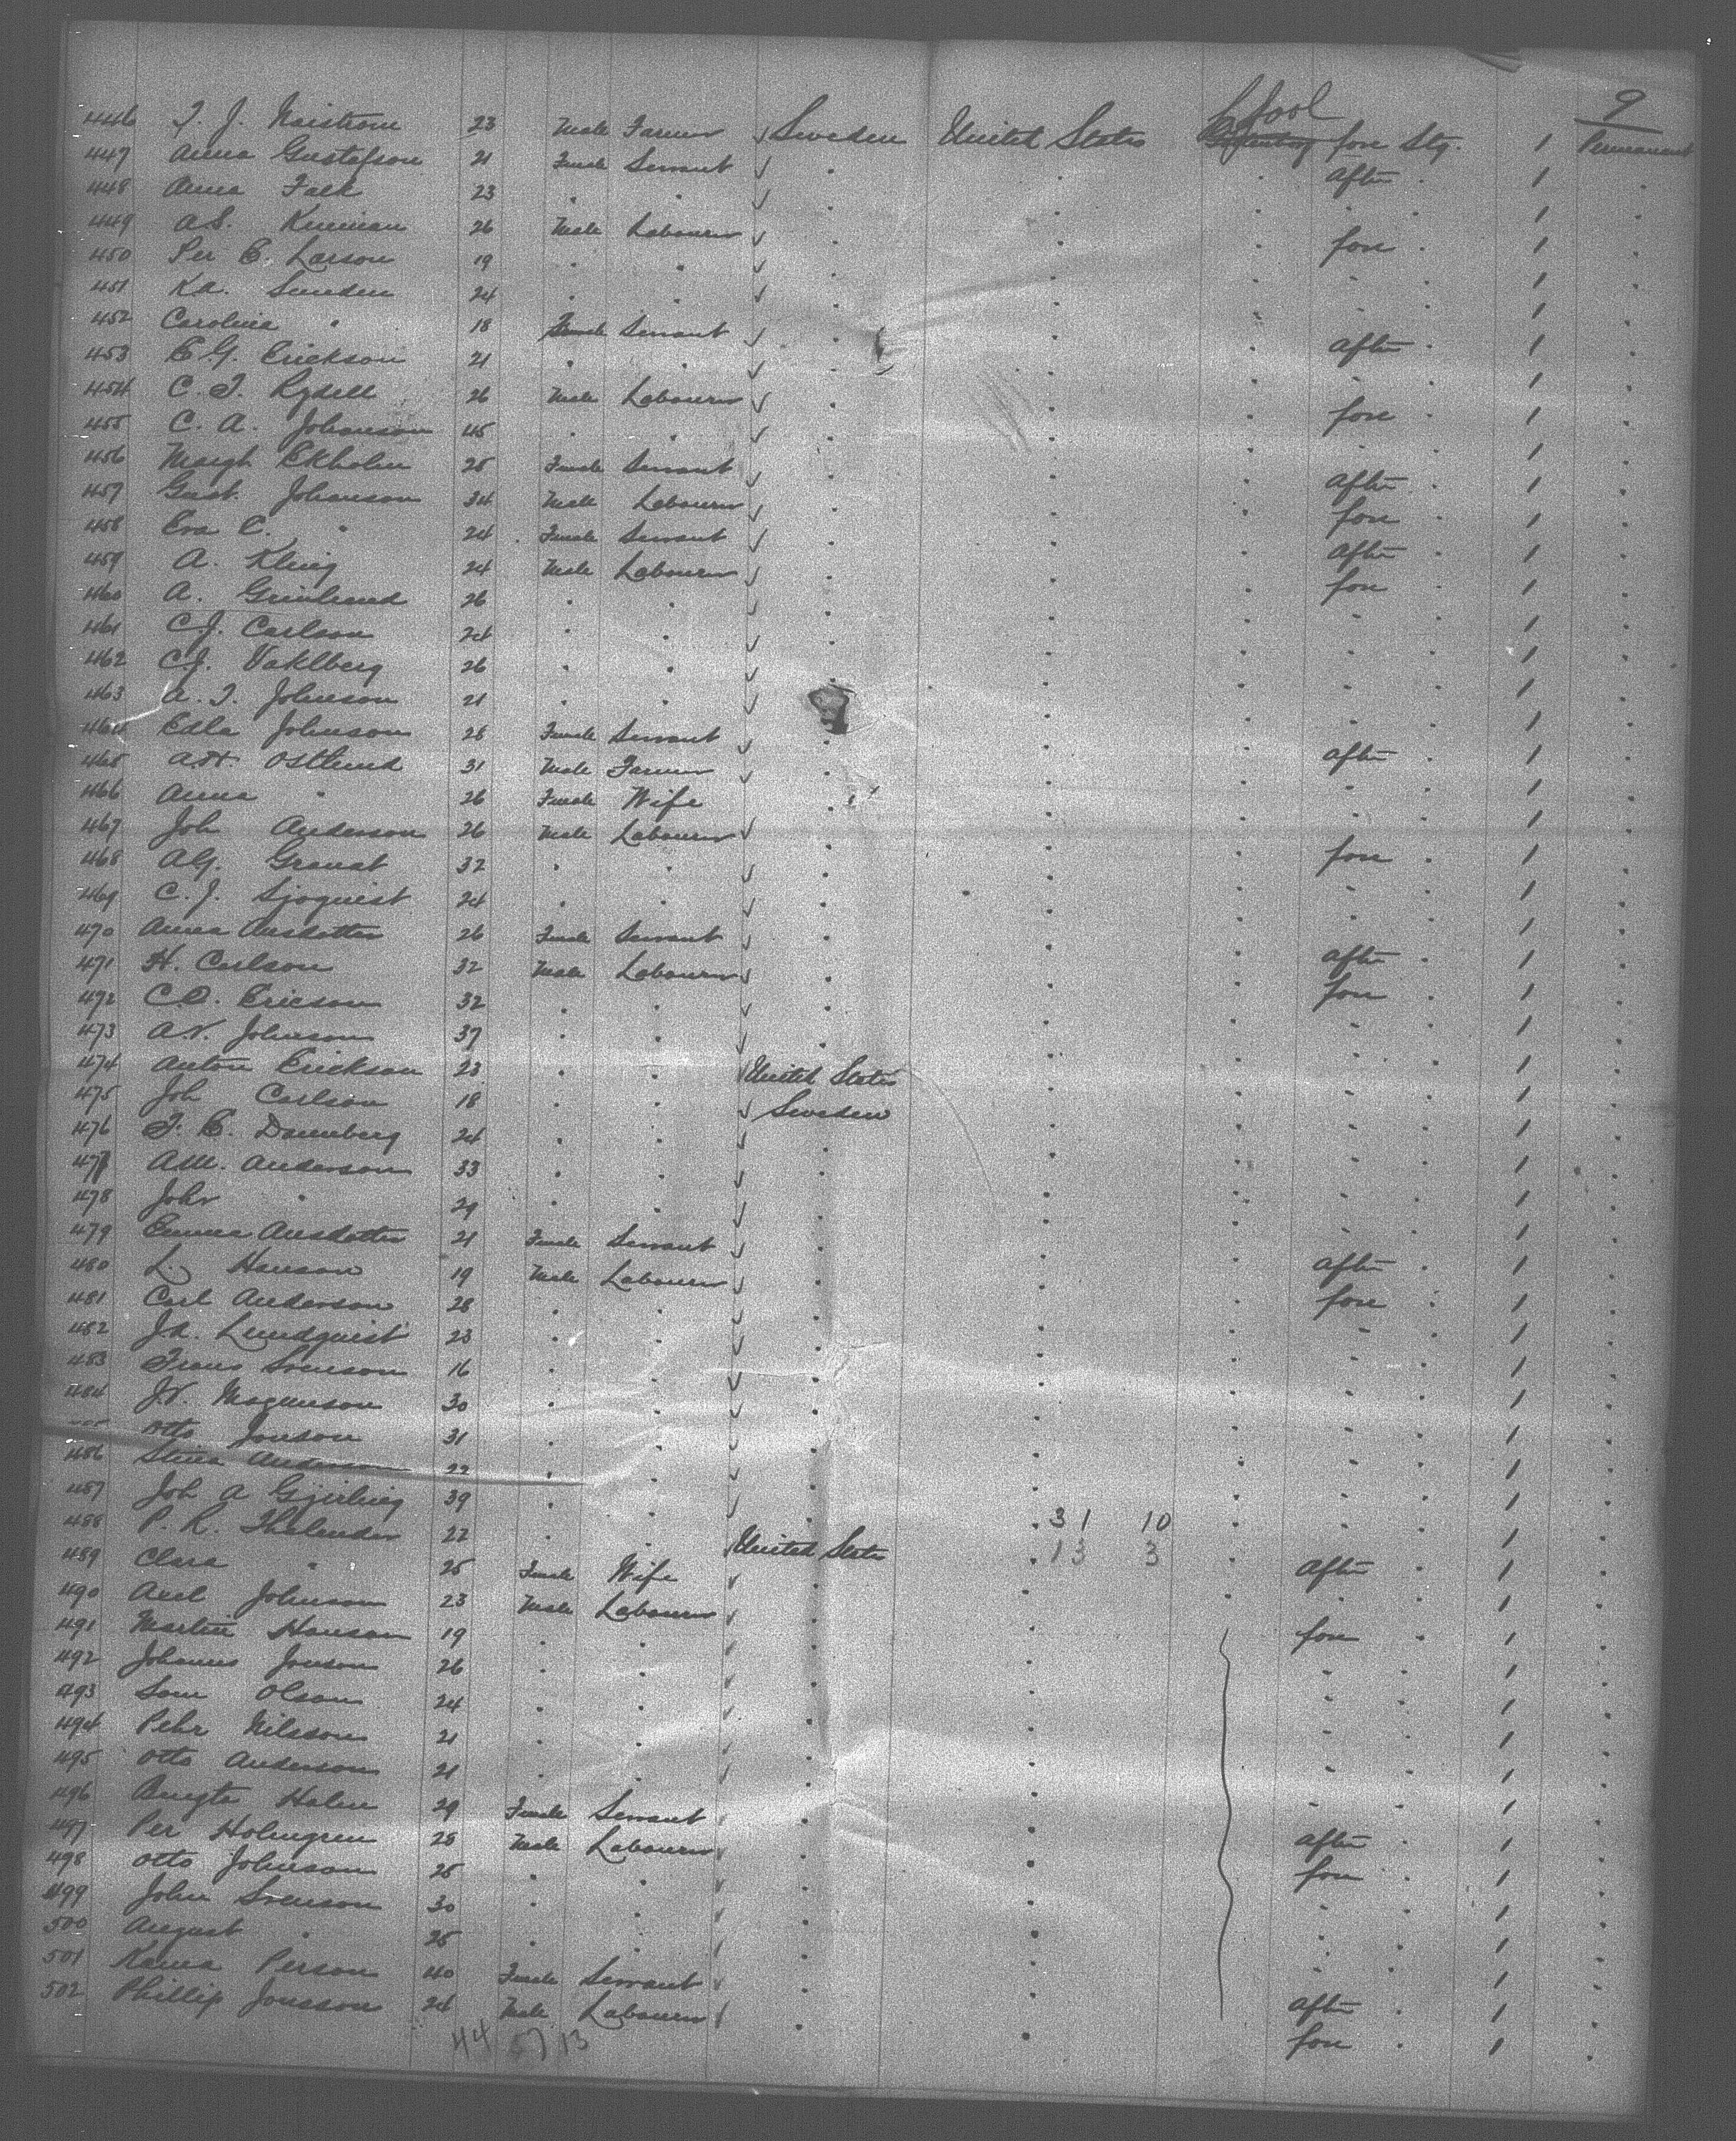 L'pool 9
446 T. J. Naistrom 23 Male Farmer Sweden United States fore Stg. 1 Permanent
447 Anna Gustafson 21 Female Servant " " " after " 1 "
448 Anna Falk 23 " " " " " " " 1 "
449 A.S. Kinman 26 Male Labourer " " " fore " 1 "
450 Per E. Larson 19 " " " " " " " 1 "
451 K.A. Sunden 24 " " " " " " " 1 "
452 Carolina " 18 Female Servant " " " after " 1 "
453 E.G. Erickson 21 " " " " " " " 1 "
454 C. T. Rydell 26 Male Labourer " " " fore " 1 "
455 C. A. Johanson 45 " " " " " " " 1 "
456 Margt Ekholm 25 Female Servant " " " after " 1 "
457 Gust. Johanson 34 Male Labourer " " " fore " 1 "
458 Eva C. " 24 Female Servant " " " after " 1 "
459 A. Kling 24 Male Labourer " " " fore " 1 "
460 A. Grinlund 26 " " " " " " " 1 "
461 C.J. Carlson 24 " " " " " " " 1 "
462 C.J. Vahlberg 26 " " " " " " " 1 "
463 A. T. Johnson 21 " " " " " " " 1 "
464 Edla Johnson 26 Female Servant " " " after " 1 "
465 A.H Ostlund 31 Male Farmer " " " " " 1 "
466 Anna " 26 Female Wife " " " " " 1 "
467 Joh Anderson 26 Male Labourer " " " fore " 1 "
468 A.G. Granat 32 " " " " " " " 1 "
469 C. J. Sjoquist 24 " " " " " " " 1 "
470 Anna Ausdotter 26 Female Servant " " " after " 1 "
471 H. Carlson 32 Male Labourer " " " fore " 1 "
472 C.O. Ericson 32 " " " " " " " 1 "
473 A.V. Johnson 37 " " " " " " " 1 "
474 Anton Erickson 23 " " United States " " " " 1 "
475 Joh Carlson 18 " " Sweden " " " " 1 "
476 F. E. Dannberg 24 " " " " " " " 1 "
477 A.M. Anderson 33 " " " " " " " 1 "
478 John " 29 " " " " " " " 1 "
479 Emma Ausdotter 21 Female Servant " " " after " 1 "
480 L. Hanson 19 Male Labourer " " " fore " 1 "
481 Carl Anderson 28 " " " " " " " 1 "
482 J.A. Lundquist 23 " " " " " " " 1 "
483 Frans Svenson 16 " " " " " " " 1 "
484 J.V. Magnuson 30 " " " " " " " 1 "
Otto Jonson 31 " " " " " " " 1 "
486 Stina Anderson 22 " " " " " " " 1 "
487 Joh A 39 " " " " 31 10 " " " 1 "
488 P. R. Thelander 22 " " United States " 13 3 " " " 1 "
489 Clara " 25 Female Wife " " " after " 1 "
490 Axel Johnson 23 Male Labourer " " " " " 1 "
491 Martin Hanson 19 " " " " fore " 1 "
492 Johannes Jonson 26 " " " " " " 1 "
493 Sam Olson 24 " " " " " " 1 "
494 Pehr Nilsson 21 " " " " " " 1 "
495 Otto Anderson 21 " " " " " " 1 "
496 Bengta Holm 29 Female Servant " " " " 1 "
497 Per Holmgren 28 Male Labourer " " after " 1 "
498 Otto Johnson 25 " " " " fore " 1 "
499 John Svenson 30 " " " " " " 1 "
500 August " 25 " " " " " " 1 "
501 Karna Person 40 Female Servant " " " " 1 "
502 Phillip Jonsson 24 Male Labourer " " after " 1 "
fore " 1 "
44 57 13